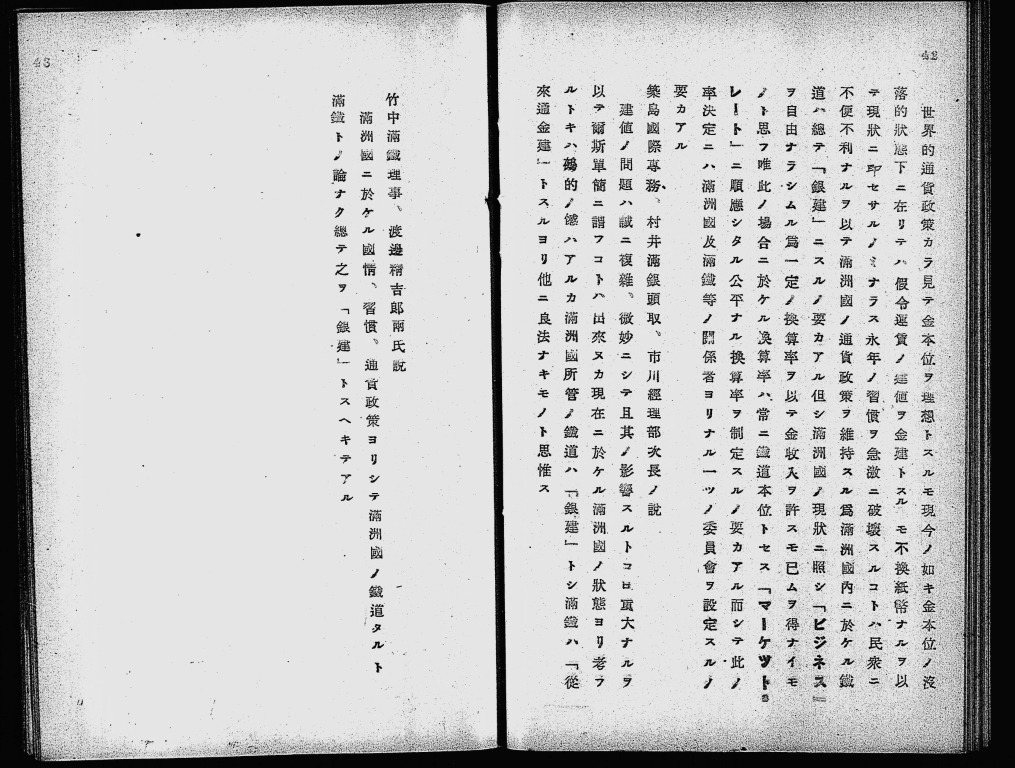 42
世界的通貨政策カラ見テ金本位ヲ理想トスルモ現今ノ如キ金本位ノ沒
落的狀態下ニ在リテハ假令運賃ノ建値ヲ金建トスルモ不換紙幣ナルヲ以
テ現狀ニ卽セサルノミナラス永年ノ習慣ヲ急激ニ破壞スルコトハ民衆ニ
不便不利ナルヲ以テ滿洲國ノ通貨政策ヲ維持スル爲滿洲國內ニ於ケル鐵
道ハ總テ「銀建」ニスルノ要カアル但シ滿洲國ノ現狀ニ照シ「ビジネス」
ヲ自由ナラシムル爲一定ノ換算率ヲ以テ金收入ヲ許スモ已ムヲ得ナイモ
ノト思フ唯此ノ場合ニ於ケル換算率ハ常ニ鐵道本位トセス「マーケツト・
レート」ニ順應シタル公平ナル換算率ヲ制定スルノ要カアル而シテ此ノ
率決定ニハ滿洲國及滿鐵等ノ關係者ヨリナル一ツノ委員會ヲ設定スルノ
要カアル
築島國際專務、村井滿銀頭取、市川經理部次長ノ說
建値ノ問題ハ誠ニ複雜、微妙ニシテ且其ノ影響スルトコロ重大ナルヲ
以テ爾斯單簡ニ謂フコトハ出來ヌカ現在ニ於ケル滿洲國ノ狀態ヨリ考フ
ルトキハ鵺的ノ感ハアルカ滿洲國所管ノ鐵道ハ「銀建」トシ滿鐵ハ「從
來通金建」トスルヨリ他ニ良法ナキモノト思惟ス
43
竹中滿鐵理事、渡邊精吉郎兩氏說
滿洲國ニ於ケル國情、習慣、通貨政策ヨリシテ滿洲國ノ鐵道タルト
滿鐵トノ論ナク總テ之ヲ「銀建」トスヘキテアル